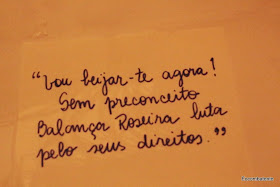 “Vou beijar-te agora!
Sem preconceito
Balança Roseira luta
pelo seus direitos.”